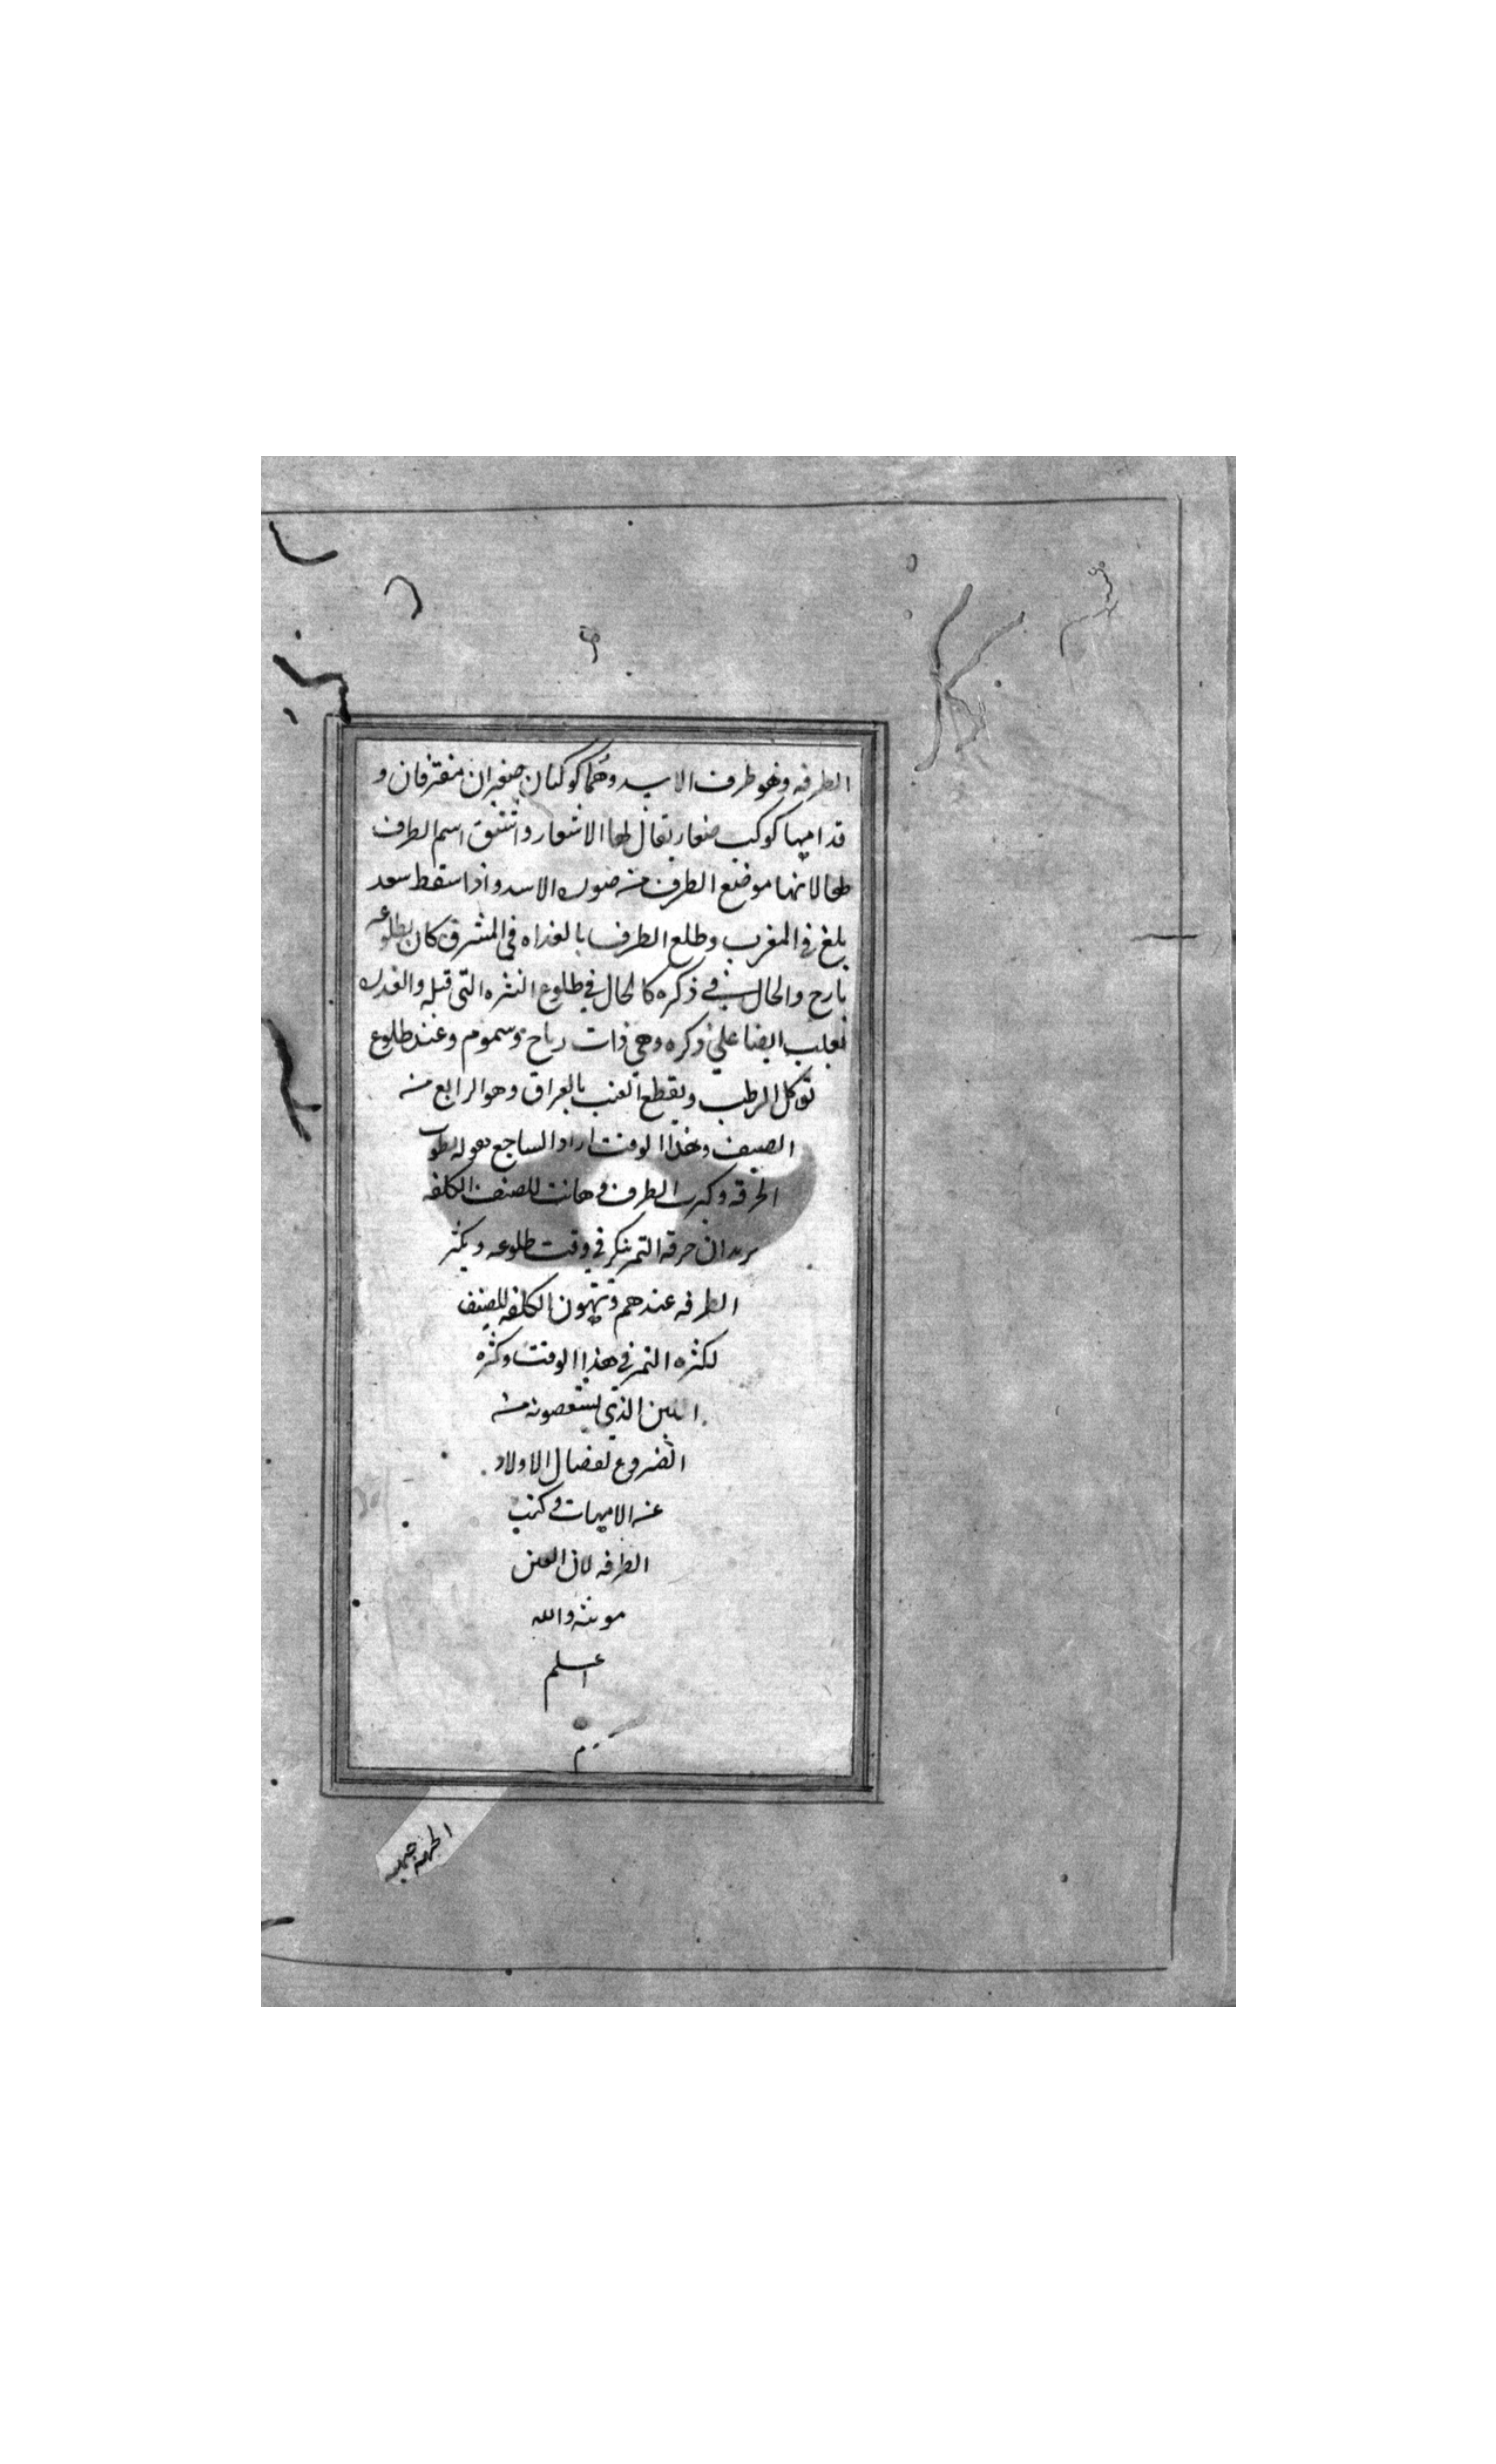 الطرفه وهو طرف الاسد وهما كوكبان صغيران مفترقان و
قدامهما كوكب صغار يقال لها الاشعار واشتق اسم الطرف
لها لانها موضع الطرف من صوره الاسد واذا سقط سعد
بلغ في المغرب وطلع الطرف بالغداه في المشرق كان بطلوعه
بارح والحال في ذكره كالحال في طلوع النثره التي قبله والغدر
تغلب ايضا علي ذكره وهي ذات رياح وسموم وعند طلوع
توكل الرطب ويقطع العنب بالعراق وهو الرابع من
الصيف وهذا الوقت اراد الساجع بقوله
الحرفه وكبرت الطرف وهانت للصنف الكلفه
يريد ان حرفه التمر في وقت طلوعه ويكثر
الطرفه عندهم وتهون الكلفه للصنف
لكثره التمر في هذا الوقت وكثره
اللبن الذي من
الضروع لفصال الاولاد
عن الامهات وكتب
الطرفه لان العين
مونثه والله
اعلم
م